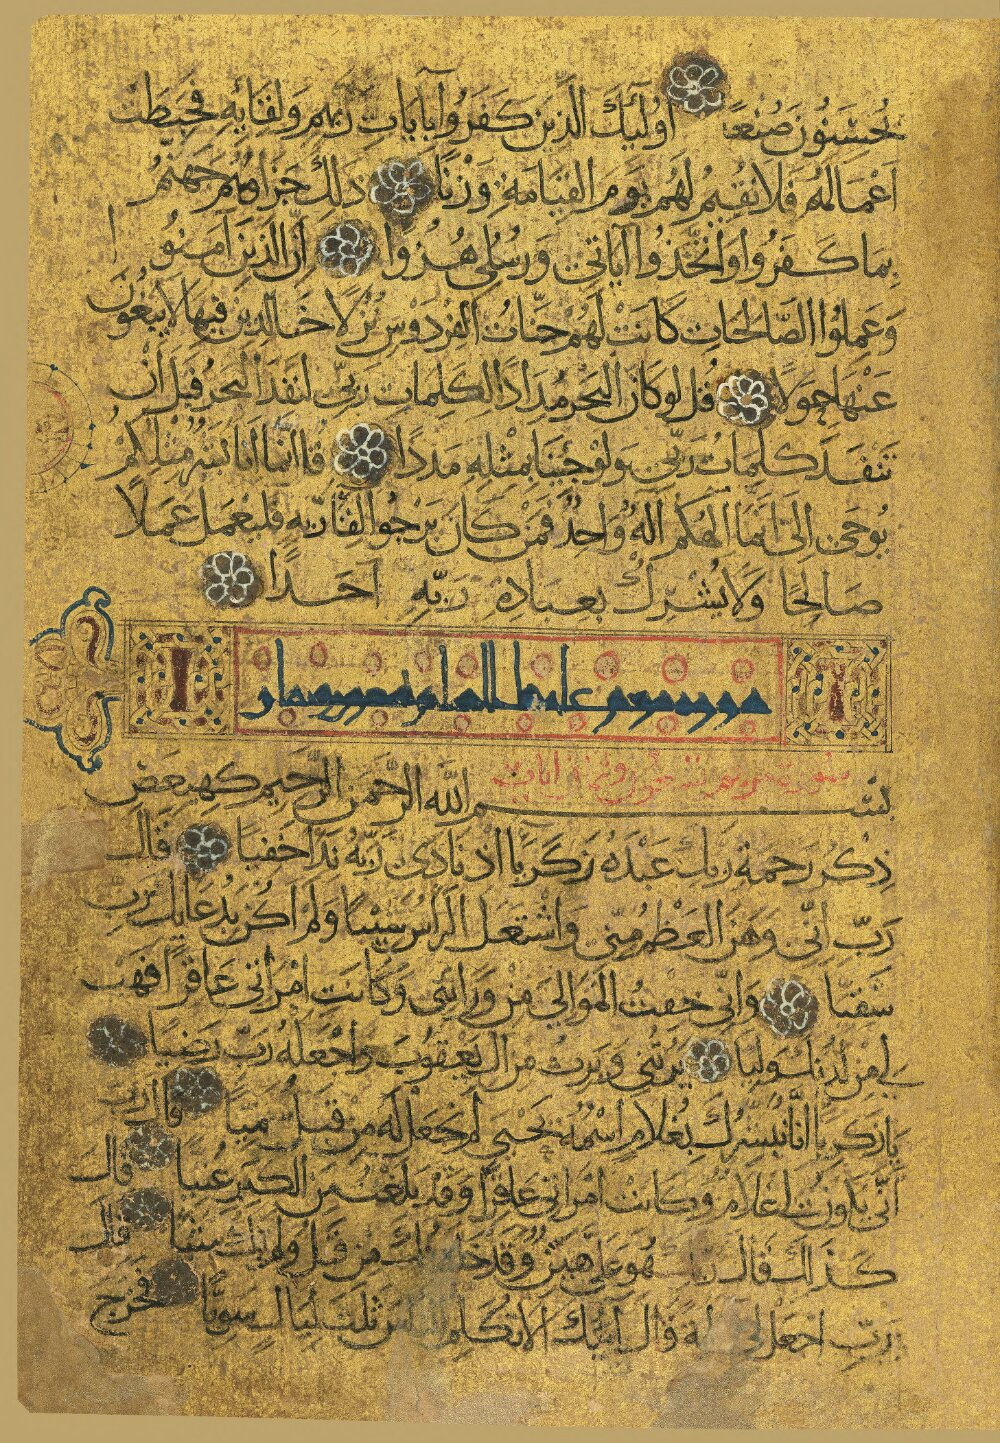 يحسنون صنعا اولئك الذين كفروا بايات ربهم ولقائه فحبطت
اعمالهم فلا نقيم لهم يوم القيامة وزنا ذلك جزاوهم جهنم
بما كفروا واتخذوا اياتي ورسلي هزوا ان الذين امنوا
وعملوا الصالحات كانت لهم جنات الفردوس نزلا خالدين فيها لا يبغون
عنها حولا قل لو كان البحر مدادا لكلمات ربي لنفد البحر قبل ان
تنفد كلمات ربي ولو جينا بمثله مددا قل انما انا بشر مثلكم
يوحى الي انما الهكم اله واحد فمن كان يرجوا لقا ربه فليعمل عملا
صالحا ولا يشرك بعبادة ربه احدا
سورة مريم
بسم الله الرحمن الرحيم كهيعص
ذكر رحمة ربك عبده زكريا اذ نادى ربه ندا خفيا قال
رب اني وهن العظم مني واشتعل الراس شيبا ولم اكن بدعايك رب
شقيا واني خفت الموالي من ورائي وكانت امراتي عاقرا فهب
لي من لدنك وليا يرثني ويرث من ال يعقوب واجعله رب رضيا
يا زكريا انا نبشرك بغلام اسمه يحيى لم نجعل له من قبل سميا قال رب
انى يكون لي غلام وكانت امراتي عاقرا وقد بلغت من الكبر عتيا قال
كذلك قال ربك هو علي هين وقد خلقتك من قبل ولم تك شيئا قال
رب اجعل لي اية قال ايتك الا تكلم الناس ثلث ليال سويا فخرج